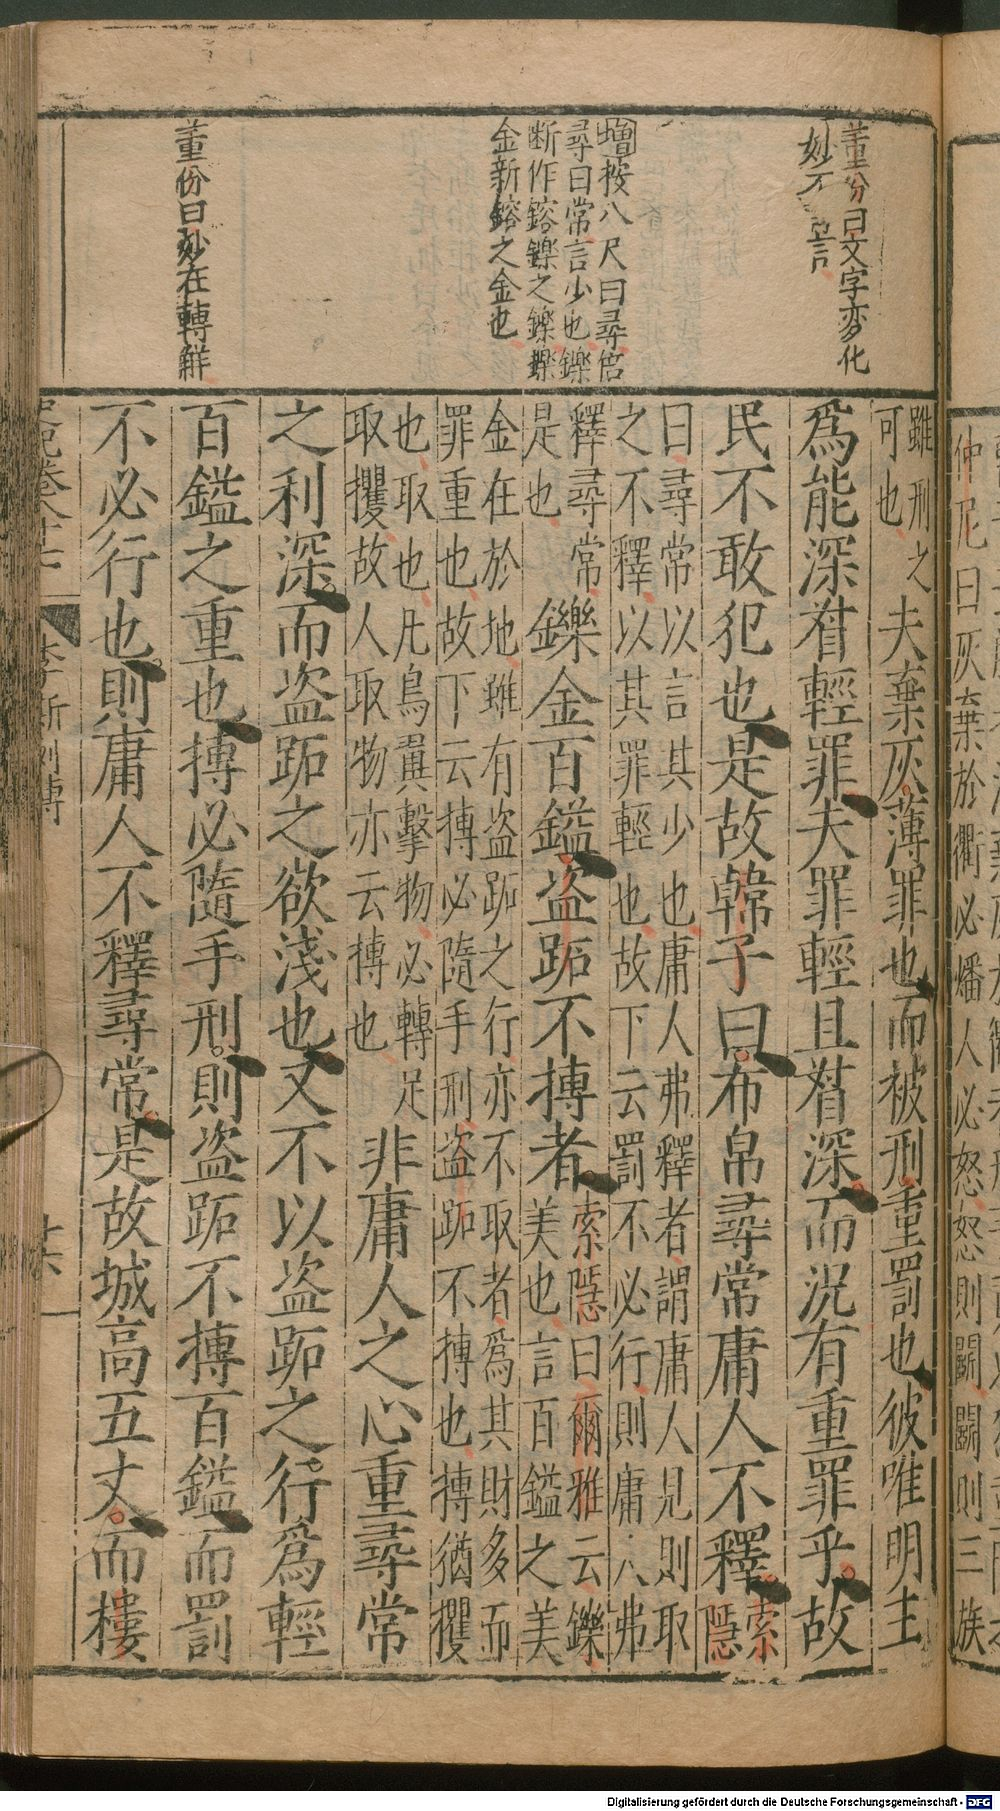 仲尼曰灰棄於衢必燔人必怒怒則鬭鬭則三族
董份曰文字変化
妙不言
增按八尺曰尋倍
尋曰常言少也鑠
断作鎔鑠之鑠鑠
金新鎔之金也
董份曰妙在轉觧
雖刑之
可也
夫棄灰薄罪也而被刑重罰也彼唯明主
爲能深督輕罪夫罪輕且督深而況有重罪乎故
民不敢犯也是故韓子曰布帛尋常庸人不釋
索
隱
曰尋常以言其少也庸人弗釋者謂庸人見則取
之不釋以其罪輕也故下云罰不必行則庸人弗
釋尋常
是也
鑠金百鎰盜跖不搏者
索隱曰爾雅云鑠
美也言百鎰之美
金在於地雖有盜跖之行亦不取者爲其財多而
罪重也故下云搏必隨手刑盜跖不搏也搏猶攫
也取也凡鳥翼擊物必轉足
取攫故人取物亦云搏也
非庸人之心重尋常
之利深而盜跖之欲淺也又不以盜跖之行爲輕
百鎰之重也搏必隨手刑則盜跖不搏百鎰而罰
不必行也則庸人不釋尋常是故城高五丈而樓
史記卷八十七
李斯列傳
十六
Digitalisierung gefördert durch die Deutsche Forschungsgemeinschaft - DFG